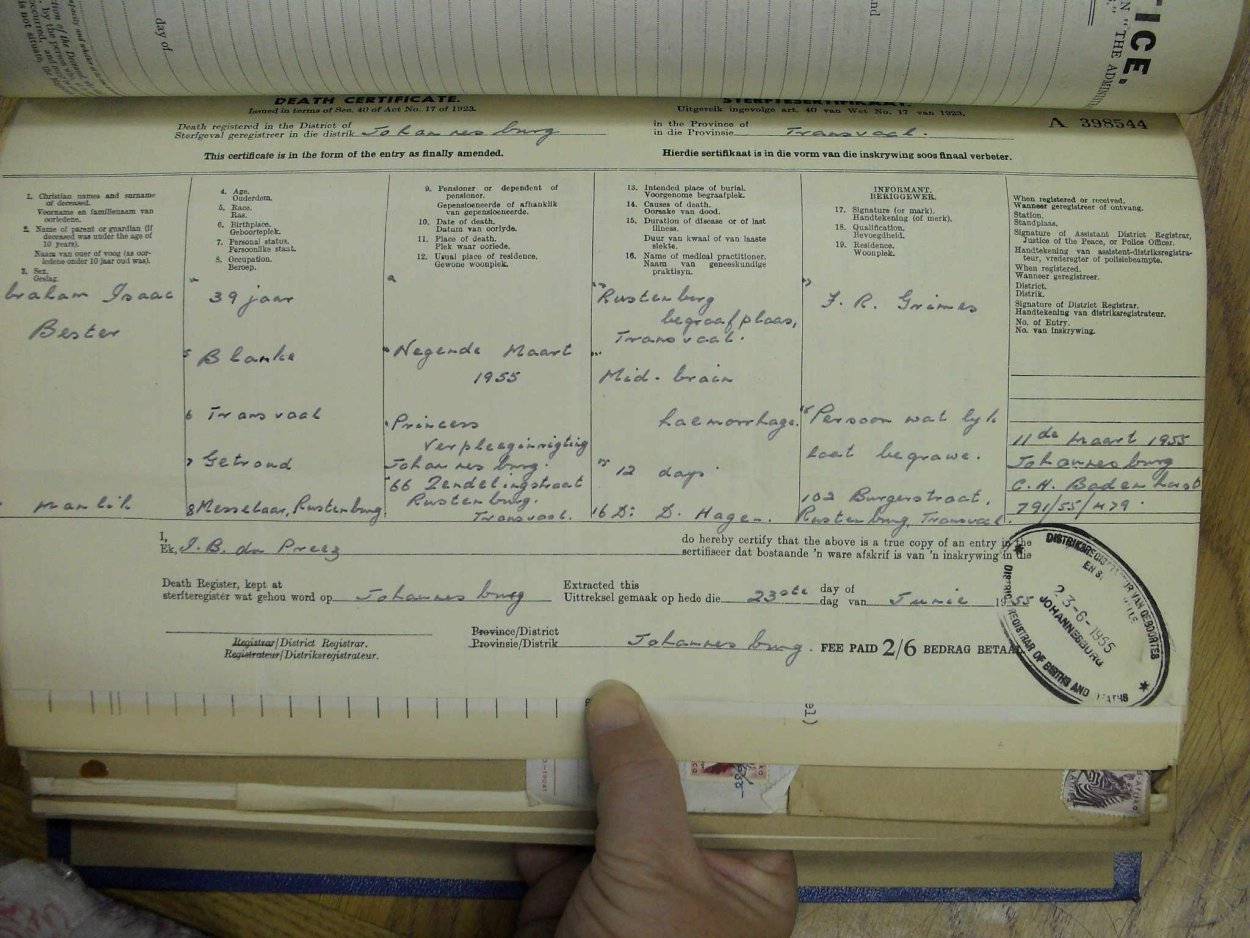 TICE,
N "THE ADMINI
day of
nd
DEATH CERTIFICATE.
Issued in terms of Sec. 40 of Act No. 17 of 1923.
STERFTESERTIFIKAAT.
Uitgereik ingevolge art. 40 van Wet No. 17 van 1923.
Death registered in the District of
Sterfgeval geregistreer in die distrik Johannesburg
in the Province of
in die Provinsie Transvaal.
A 398544
This certificate is in the form of the entry as finally amended.
Hierdie sertifikaat is in die vorm van die inskrywing soos finaal verbeter.
1. Christian names and surname
of deceased.
Voorname en familienaam van
oorledene.
2. Name of parent or guardian (if
deceased was under the age of
10 years).
Naam van ouer of voog (as oor-
ledene onder 10 jaar oud was).
3. Sex.
Geslag.
braham Isaac
Bester
manlik
4. Age.
Ouderdom.
5. Race.
Ras.
6. Birthplace.
Geboorteplek.
7. Personal status.
Persoonlike staat.
8. Occupation.
Beroep.
39 jaar
5 Blanke
6 Transvaal
7 Getroud
8 Messelaar, Rustenburg
9. Pensioner or dependent of
pensioner.
Gepensioeneerde of afhanklik
van gepensioeneerde.
10. Date of death.
Datum van oorlyde.
11. Place of death.
Plek waar oorlede.
12. Usual place of residence.
Gewone woonplek.
Negende Maart
1955
Princess
Verpleeginrigting
Johannesburg.
66 Zendelingstraat
Rustenburg.
Transvaal.
13. Intended place of burial.
Voorgenome begraafplek.
14. Causes of death.
Oorsake van dood.
15. Duration of disease or of last
illness.
Duur van kwaal of van laaste
siekte.
16. Name of medical practitioner.
Naam van geneeskundige
praktisyn.
Rustenburg
begraafplaas,
Transvaal.
Mid-brain
haemorrhage.
12 days
16 Dr. D. Hagen.
INFORMANT.
BERIGGEWER.
17. Signature (or mark).
Handtekening (of merk).
18. Qualification.
Bevoegdheid.
19. Residence.
Woonplek.
F. R. Grimes
Persoon wat lyk
laat begrawe.
102 Burgerstraat,
Rustenburg, Transvaal.
When registered or received.
Wanneer geregistreer of ontvang.
Station.
Standplaas.
Signature of Assistant District Registrar,
Justice of the Peace, or Police Officer.
Handtekening van assistent-distriksregistra-
teur, vrederegter of polisiebeampte.
When registered.
Wanneer geregistreer.
District.
Distrik.
Signature of District Registrar.
Handtekening van distriksregistrateur.
No. of Entry.
No. van Inskrywing.
11de Maart 1955
Johannesburg
C. H. Badenhorst
791/55/479.
I,
Ek, J. B. du Preez
do hereby certify that the above is a true copy of an entry in the
sertifiseer dat bostaande 'n ware afskrif is van 'n inskrywing in die
Death Register, kept at
sterfteregister wat gehou word op Johannesburg
Extracted this
Uittreksel gemaak op hede die 23ste
day of
dag van Junie 1955
Registrar/District Registrar.
Registrateur/Distriksregistrateur.
Province/District
Provinsie/Distrik Johannesburg.
FEE PAID 2/6 BEDRAG BETAAL
23-6-1955
JOHANNESBURG
REGISTRAR OF BIRTHS AND